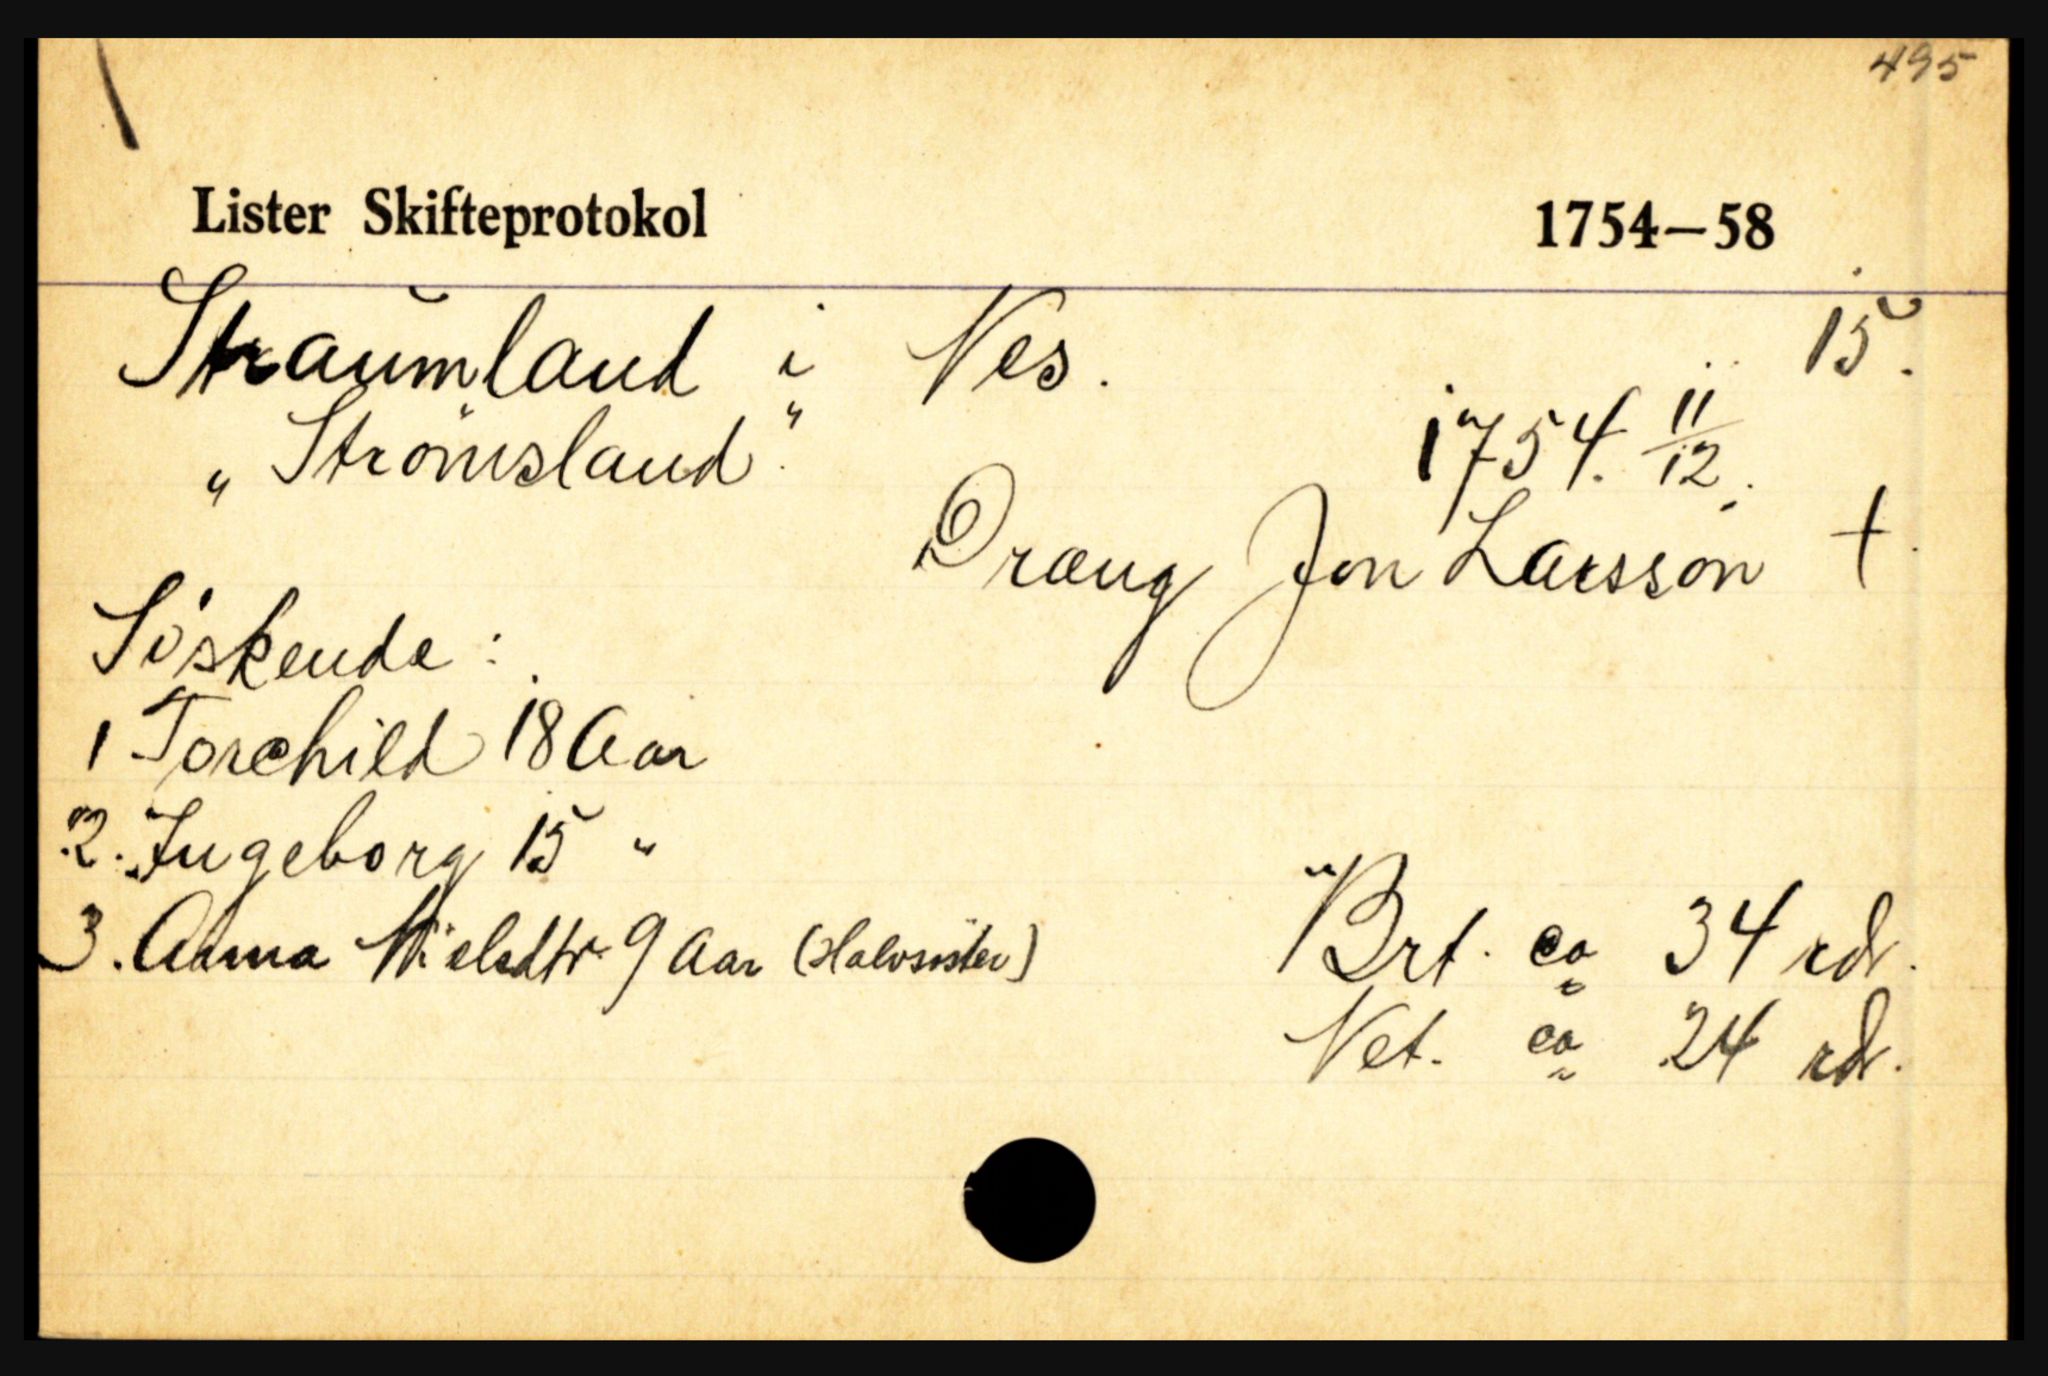 495
Lister Skifteprotokol 1754—58
Straumland i Ves. 15.
„Strömsland" 1754. 11/12.
Dræng Jon Larsson †.
Söskende:
1 Torchild 18 Aar
2. Ingeborg 15 "
3. Anna Nielsdtr. 9 Aar (Halvsöster)
Brt. ca 34 rdr.
Net. ca 24 rdr.